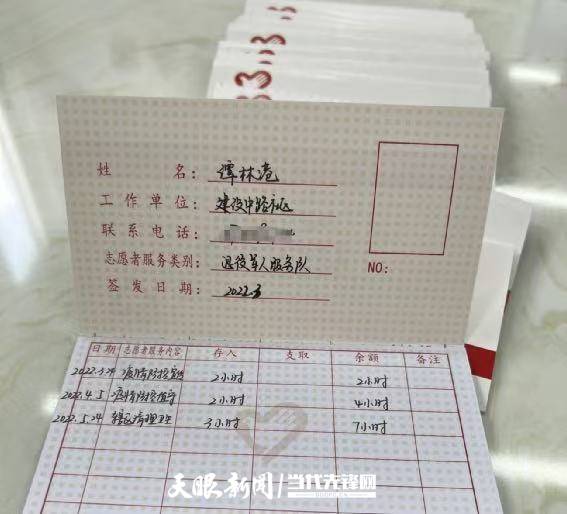 姓名：谭林港
工作单位：建设中路社区
联系电话：
志愿者服务类别：退役军人服务队
签发日期：2022.3
NO：
日期 志愿者服务内容 存入 支取 余额 备注
2022.3.24 疫情防控宣传 2小时 2小时
2022.4.5 疫情防控值守 2小时 4小时
2022.5.24 辖区清理卫生 3小时 7小时
天眼新闻 当代先锋网